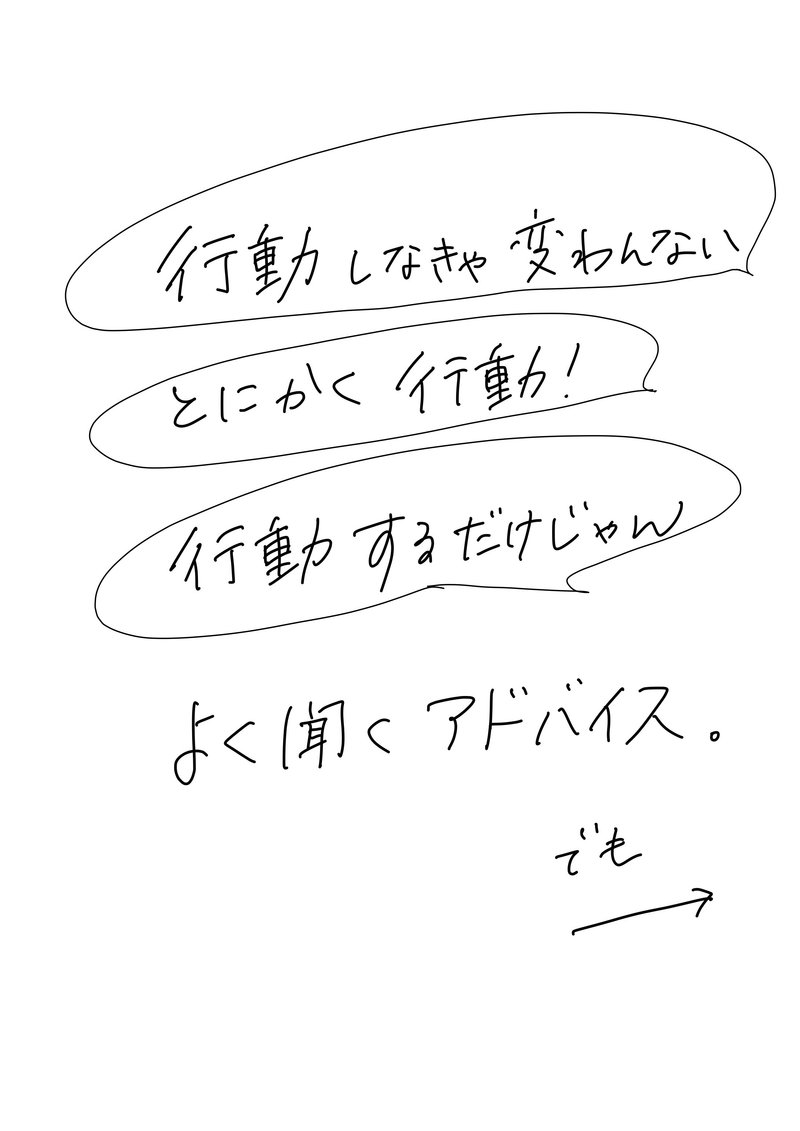 行動しなきゃ変わんない
とにかく行動!
行動するだけじゃん
よく聞くアドバイス。
でも
→